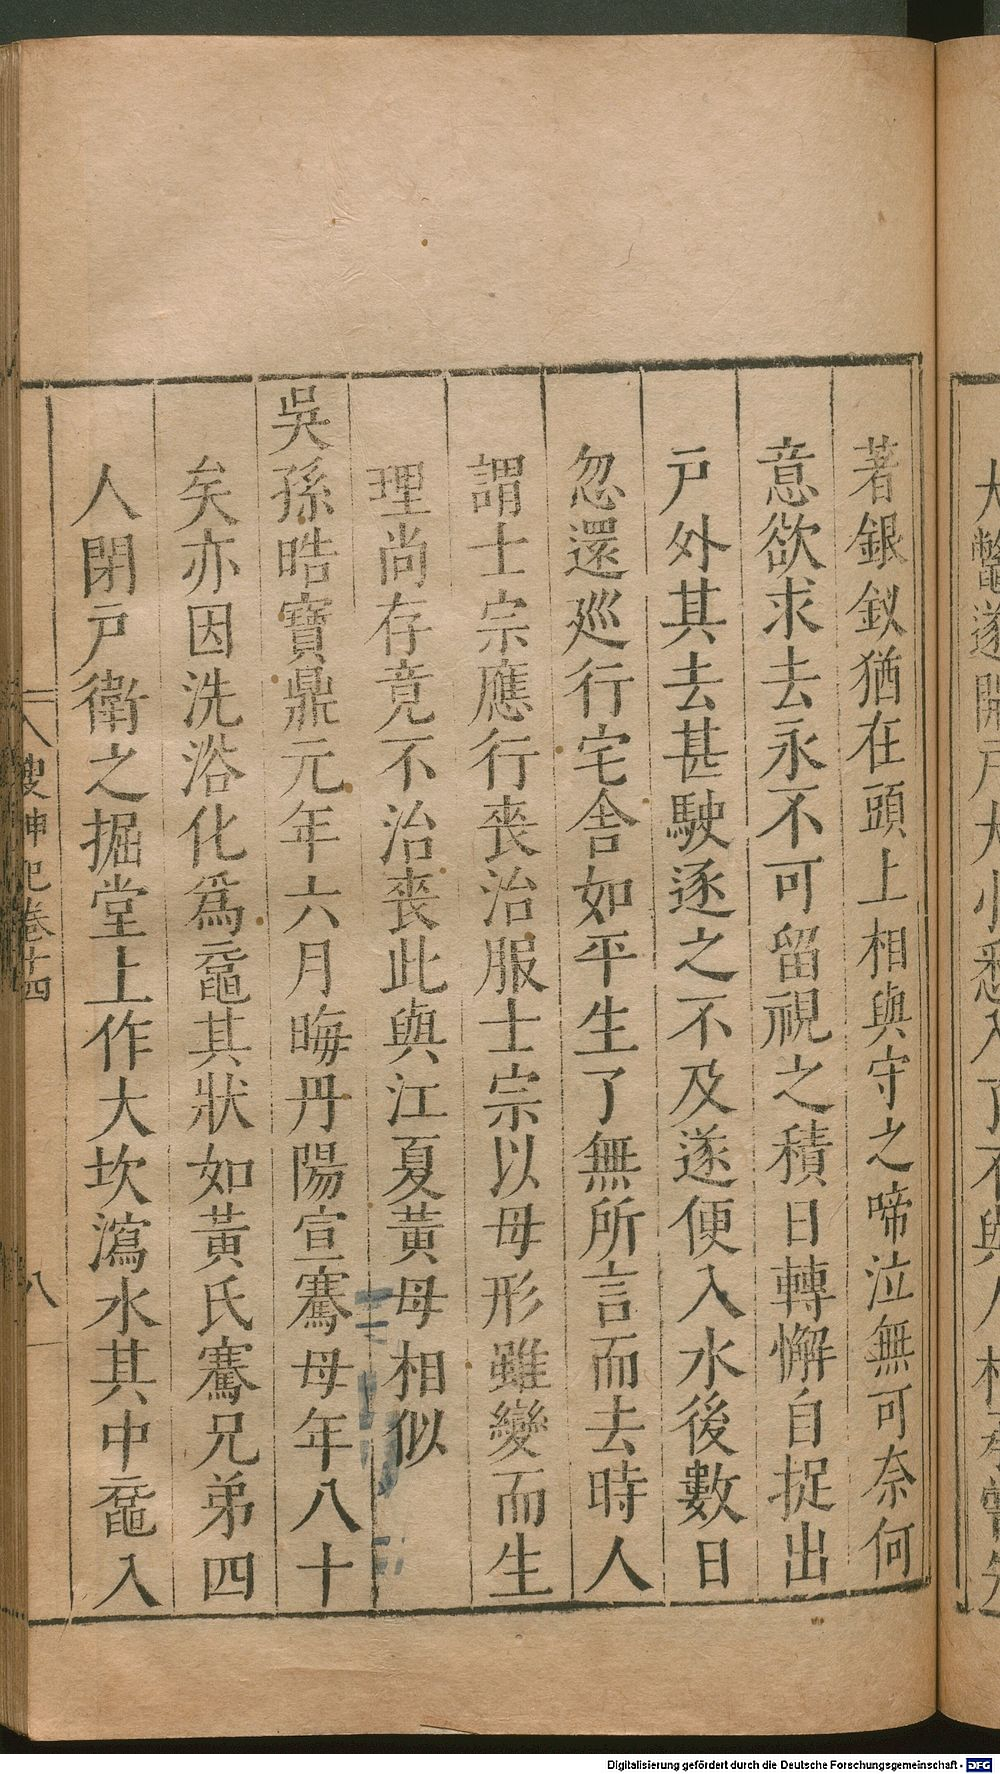 大鼈遂開戶大小悉入了不與人相承嘗先
著銀釵猶在頭上相與守之啼泣無可奈何
意欲求去永不可留視之積日轉懈自捉出
戶外其去甚駛逐之不及遂便入水後數日
忽還巡行宅舍如平生了無所言而去時人
謂士宗應行喪治服士宗以母形雖變而生
理尚存竟不治喪此與江夏黃母相似
吳孫晧寶鼎元年六月晦丹陽宣騫母年八十
矣亦因洗浴化爲黿其狀如黃氏騫兄弟四
人閉戶衛之掘堂上作大坎瀉水其中黿入
搜神記卷十四 八
Digitalisierung gefördert durch die Deutsche Forschungsgemeinschaft - DFG